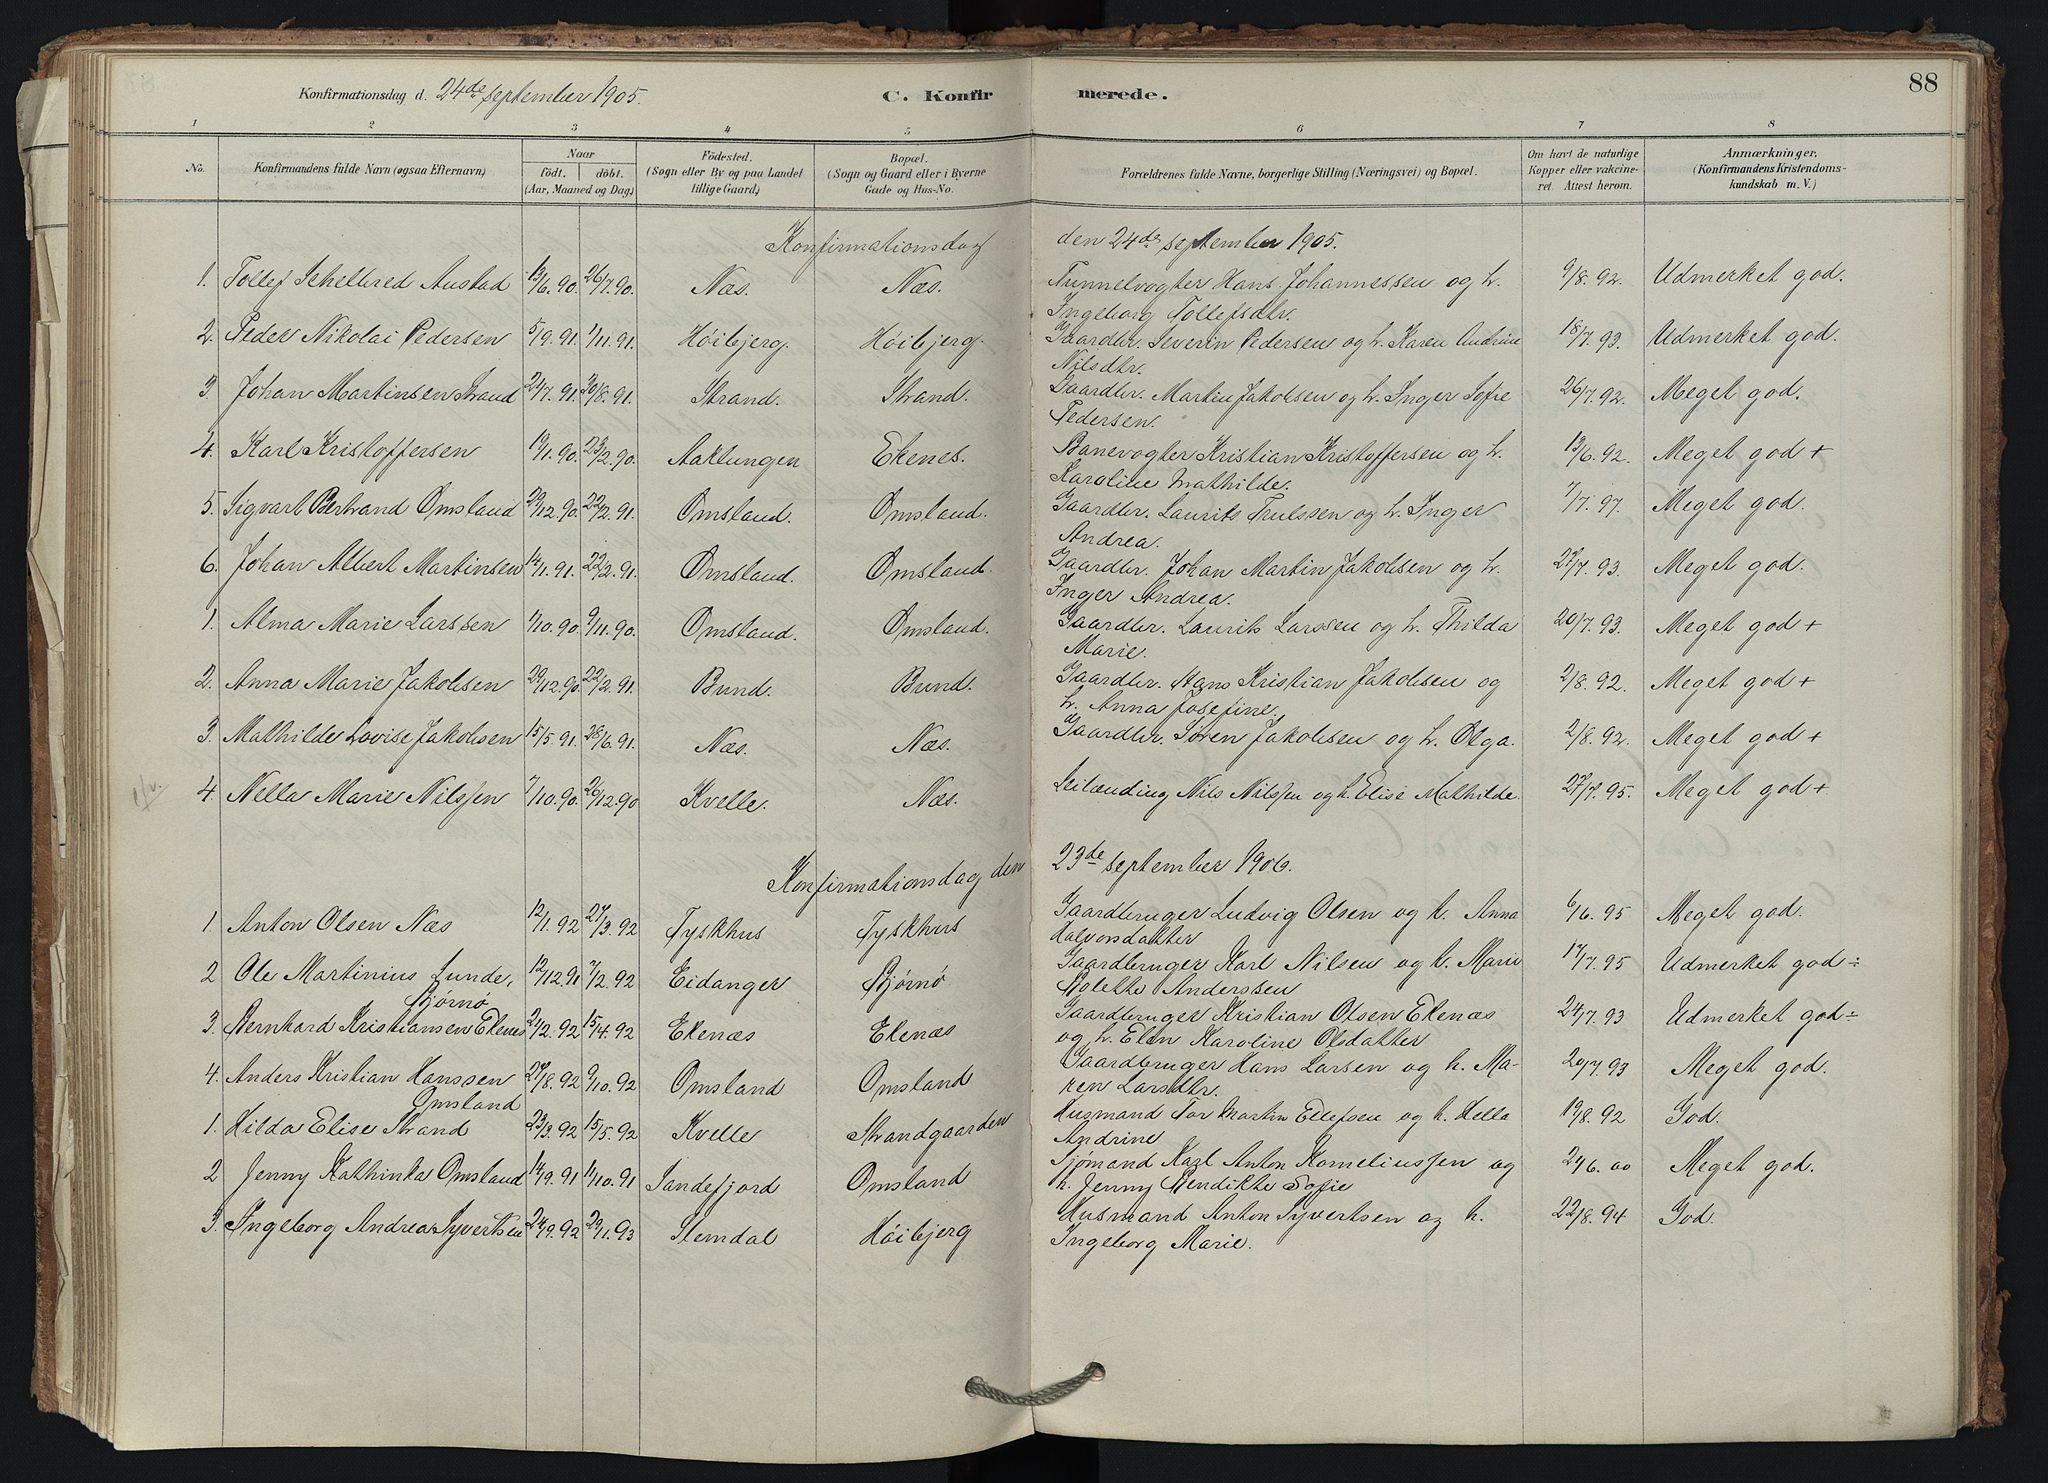 Konfirmationsdag d. 24de september 1905. C. Konfirmerede. 88
1 2 3 4 5 6 7 8
No. Konfirmandens fulde Navn (ogsaa Efternavn). Naar födt. döbt. (Aar, Maaned og Dag.) Födested. (Sogn eller By og paa Landet tillige Gaard.) Bopæl. (Sogn og Gaard eller i Byerne Gade og Hus-No. Forældrenes fulde Navne, borgerlige Stilling (Næringsvei) og Bopæl. Om havt de naturlige Kopper eller vakcineret. Attest herom. Anmærkninger. (Konfirmandens Kristendomskundskab m. V.)
Konfirmationsdag den 24de september 1905.
1. Tollef Skelbred Austad 13/6.90. 26/7.90. Næs. Næs. Tunnelvogter Hans Johannessen og h. 9/8.92. Udmerket god.
Ingeborg Tollefsdtr.
2. Peder Nikolai Pedersen 5/9.91. 1/11.91. Høibjerg. Høibjerg. Gaardbr. Severin Pedersen og h. Karen Andrine 18/7.93. Udmerket god.
Nilsdtr.
3. Johan Martinsen Strand 24/7.91. 30/8.91. Strand. Strand. Gaardbr. Martin Jakobsen og h. Inger Sofie 26/7.92. Meget god.
Pedersen.
4. Karl Kristoffersen 19/1.90. 23/2.90. Aaklungen Ekenes. Banevogter Kristian Kristoffersen og h. 13/6.92. Meget god +
Karoline Mathilde.
5. Sigvart Bertrand Omsland 29/12.90. 22/2.91. Omsland. Omsland. Gaardbr. Laurits Trulssen og h. Inger 7/7.97. Meget god.
Andrea.
6. Johan Albert Martinsen 14/1.91. 22/2.91. Omsland. Omsland. Gaardbr. Johan Martin Jakobsen og h. 27/7.93. Meget god.
Inger Andrea.
1. Alma Marie Larssen 1/10.90. 9/11.90. Omsland. Omsland. Gaardbr. Laurits Larssen og h. Thilda 20/7.93. Meget god +
Marie.
2. Anna Marie Jakobsen 29/12.90. 22/2.91. Bund. Bund. Gaardbr. Hans Kristian Jakobsen og 2/8.92. Meget god +
h. Anna Josefine.
3. Mathilde Lovise Jakobsen 15/5.91. 28/6.91. Næs. Næs. Gaardbr. Søren Jakobsen og h. Olga. 2/8.92. Meget god +
4. Nella Marie Nilssen 7/10.90. 26/12.90 Kvelle. Næs. Leilænding Nils Nilssen og h. Elise Mathilde. 27/7.95. Meget god +
Konfirmationsdag den 23de september 1906.
1. Anton Olsen Næs 12/1.92 27/3.92 Tyskhus Tyskhus Gaardbruger Ludvig Olsen og h. Anna 6/6.95 Meget god.
Halvorsdatter
2 Ole Martinius Lunde, 12/12.91 7/12.92 Eidanger Bjørnø Gaardbruger Karl Nilsen og h. Marie 17/7.95 Udmerket god ÷
Bjørnø Bolette Anderssen
3. Bernhard Kristiansen Ekenes 21/2.92 15/4.92 Ekenæs Ekenæs Gaardbruger Kristian Olsen Ekenæs 24/7.93 Udmerket god ÷
og h. Elen Karoline Olsdatter
4. Anders Kristian Hanssen 29/8.92 9/10.92 Omsland Omsland Gaardbruger Hans Larsen og h. Ma- 20/7.93 Meget god.
Omsland ren Larsdtr.
1. Hilda Elise Strand 23/3.92 15/5.92 Kvelle Strandgaarden Husmand Tor Martin Ellefsen og h. Hella 19/8.92 God.
Andrine
2 Jenny Kathinka Omsland 14/9.91 11/10.91 Sandefjord Omsland Sjømand Karl Anton Korneliussen og 21/6.00 Meget god.
h. Jenny Bendikte Sofie
3. Ingeborg Andrea Syvertsen 24/9.92 29/1.93 Slemdal Høibjerg Husmand Anton Syvertsen og h. 22/8.94 God.
Ingeborg Marie.